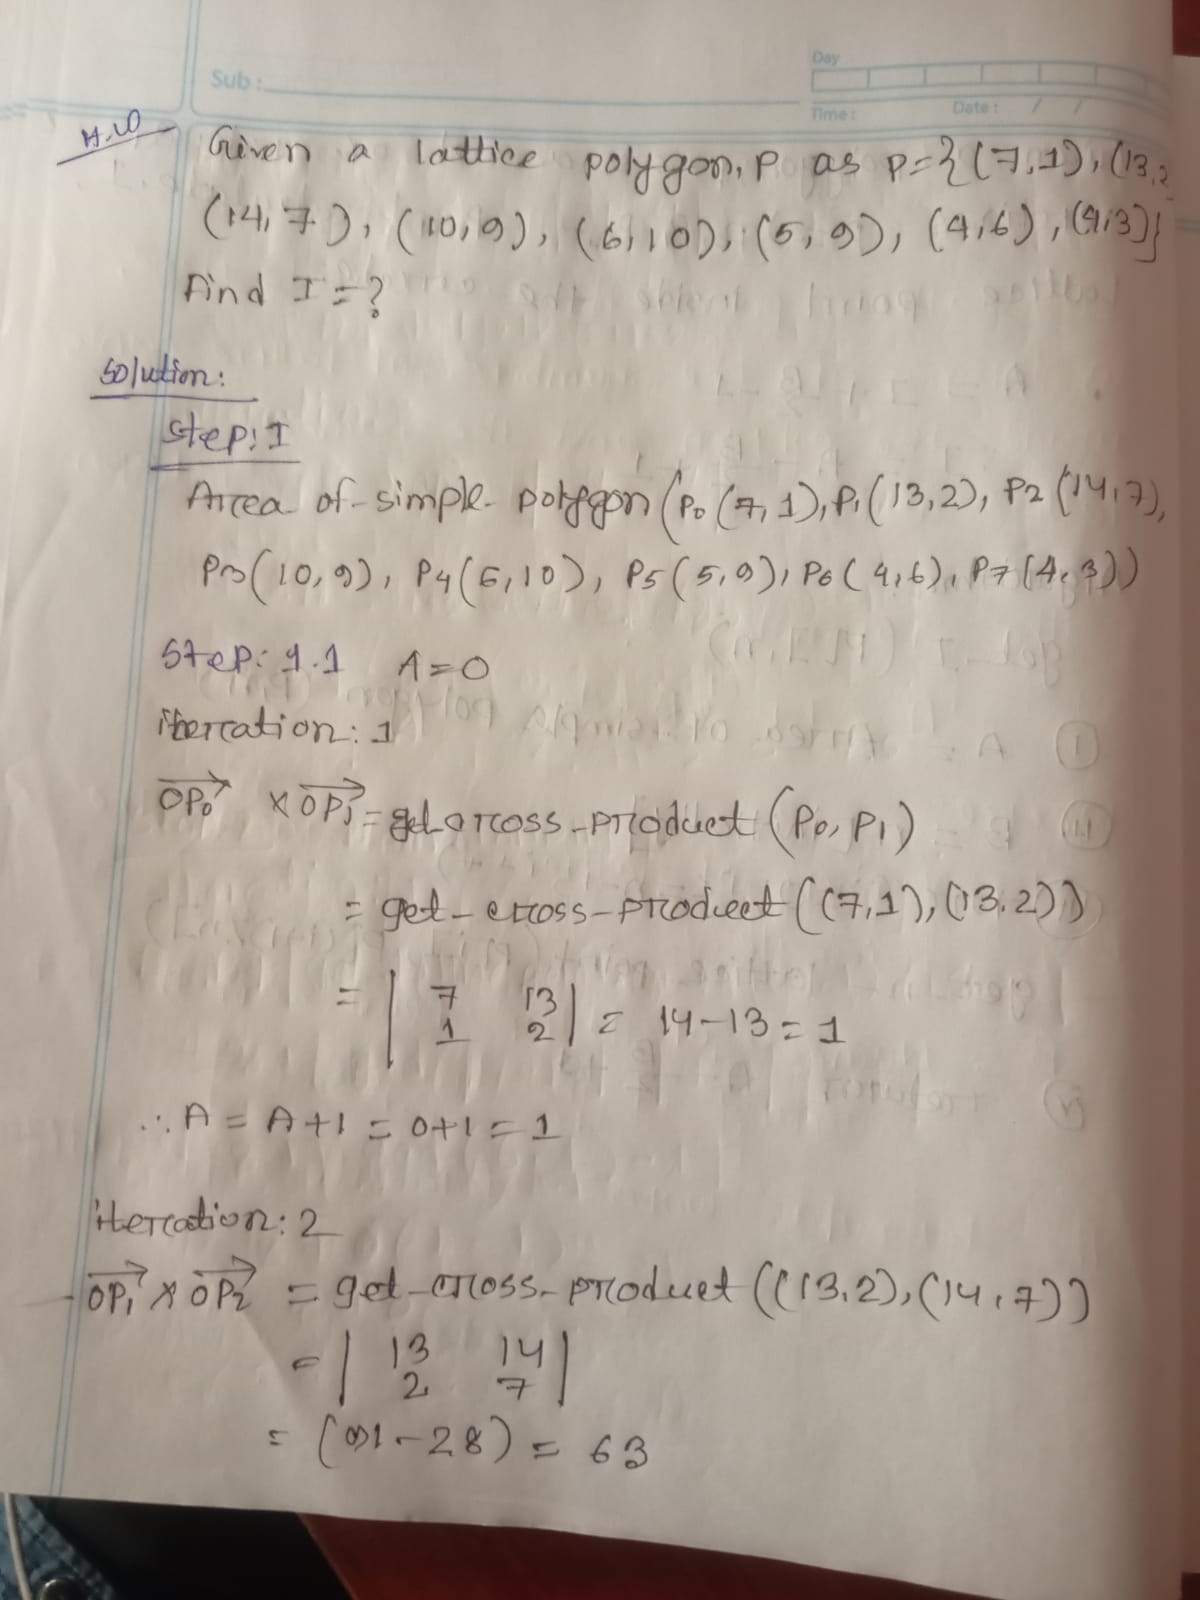 Sub:
Day
Time:
Date: / /
H.W
Given a lattice polygon, P as P={(7,1), (13,2
(14,7), (10,9), (6,10), (5,9), (4,6), (4,3)}
Find I=?
Solution:
Step: I
Area of-simple-polygon (P0 (7,1), P1 (13,2), P2 (14,7),
P3 (10,9), P4 (6,10), P5 (5,9), P6 (4,6), P7 (4,3))
Step: 1.1 A=0
iteration: 1
OP0 × OP1 = get-cross-product (P0, P1)
= get-cross-product ((7,1), (13,2))
= | 7 13 |
| 1 2 | = 14-13=1
∴ A = A+1 = 0+1 = 1
iteration: 2
OP1 × OP2 = get-cross-product ((13,2), (14,7))
= | 13 14 |
| 2 7 |
= (91-28) = 63